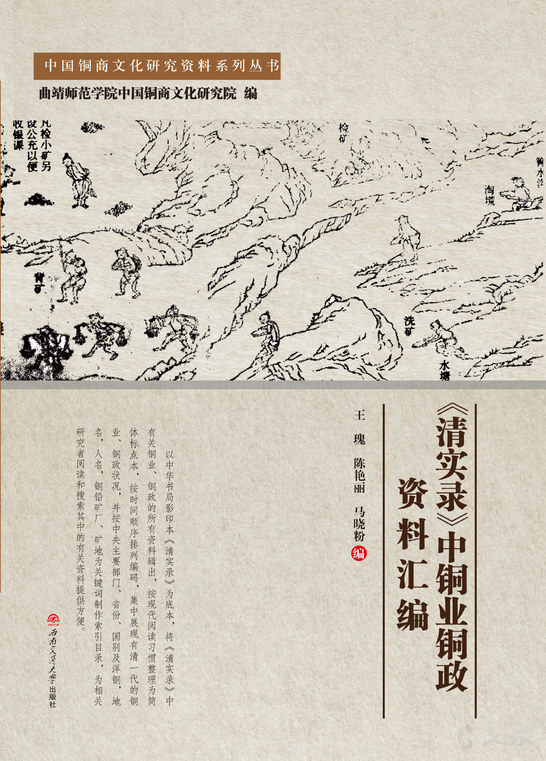 中国铜商文化研究资料系列丛书
曲靖师范学院中国铜商文化研究院 编
凡检小矿另
设公充以便
收银课
检矿
淘境
背矿
洗矿
水塘
《清实录》中铜业铜政
资料汇编
王 瑰 陈艳丽 马晓粉 编
以中华书局影印本《清实录》为底本，将《清实录》中
有关铜业、铜政的所有资料辑出，按现代阅读习惯整理为简
体标点本，按时间顺序排列编码，集中展现有清一代的铜
业、铜政状况，并按中央主要部门、省份、国别及洋铜，地
名，人名，铜铅矿厂、矿地为关键词制作索引目录，为相关
研究者阅读和搜索其中的有关资料提供方便。
西南交通大学
出版社